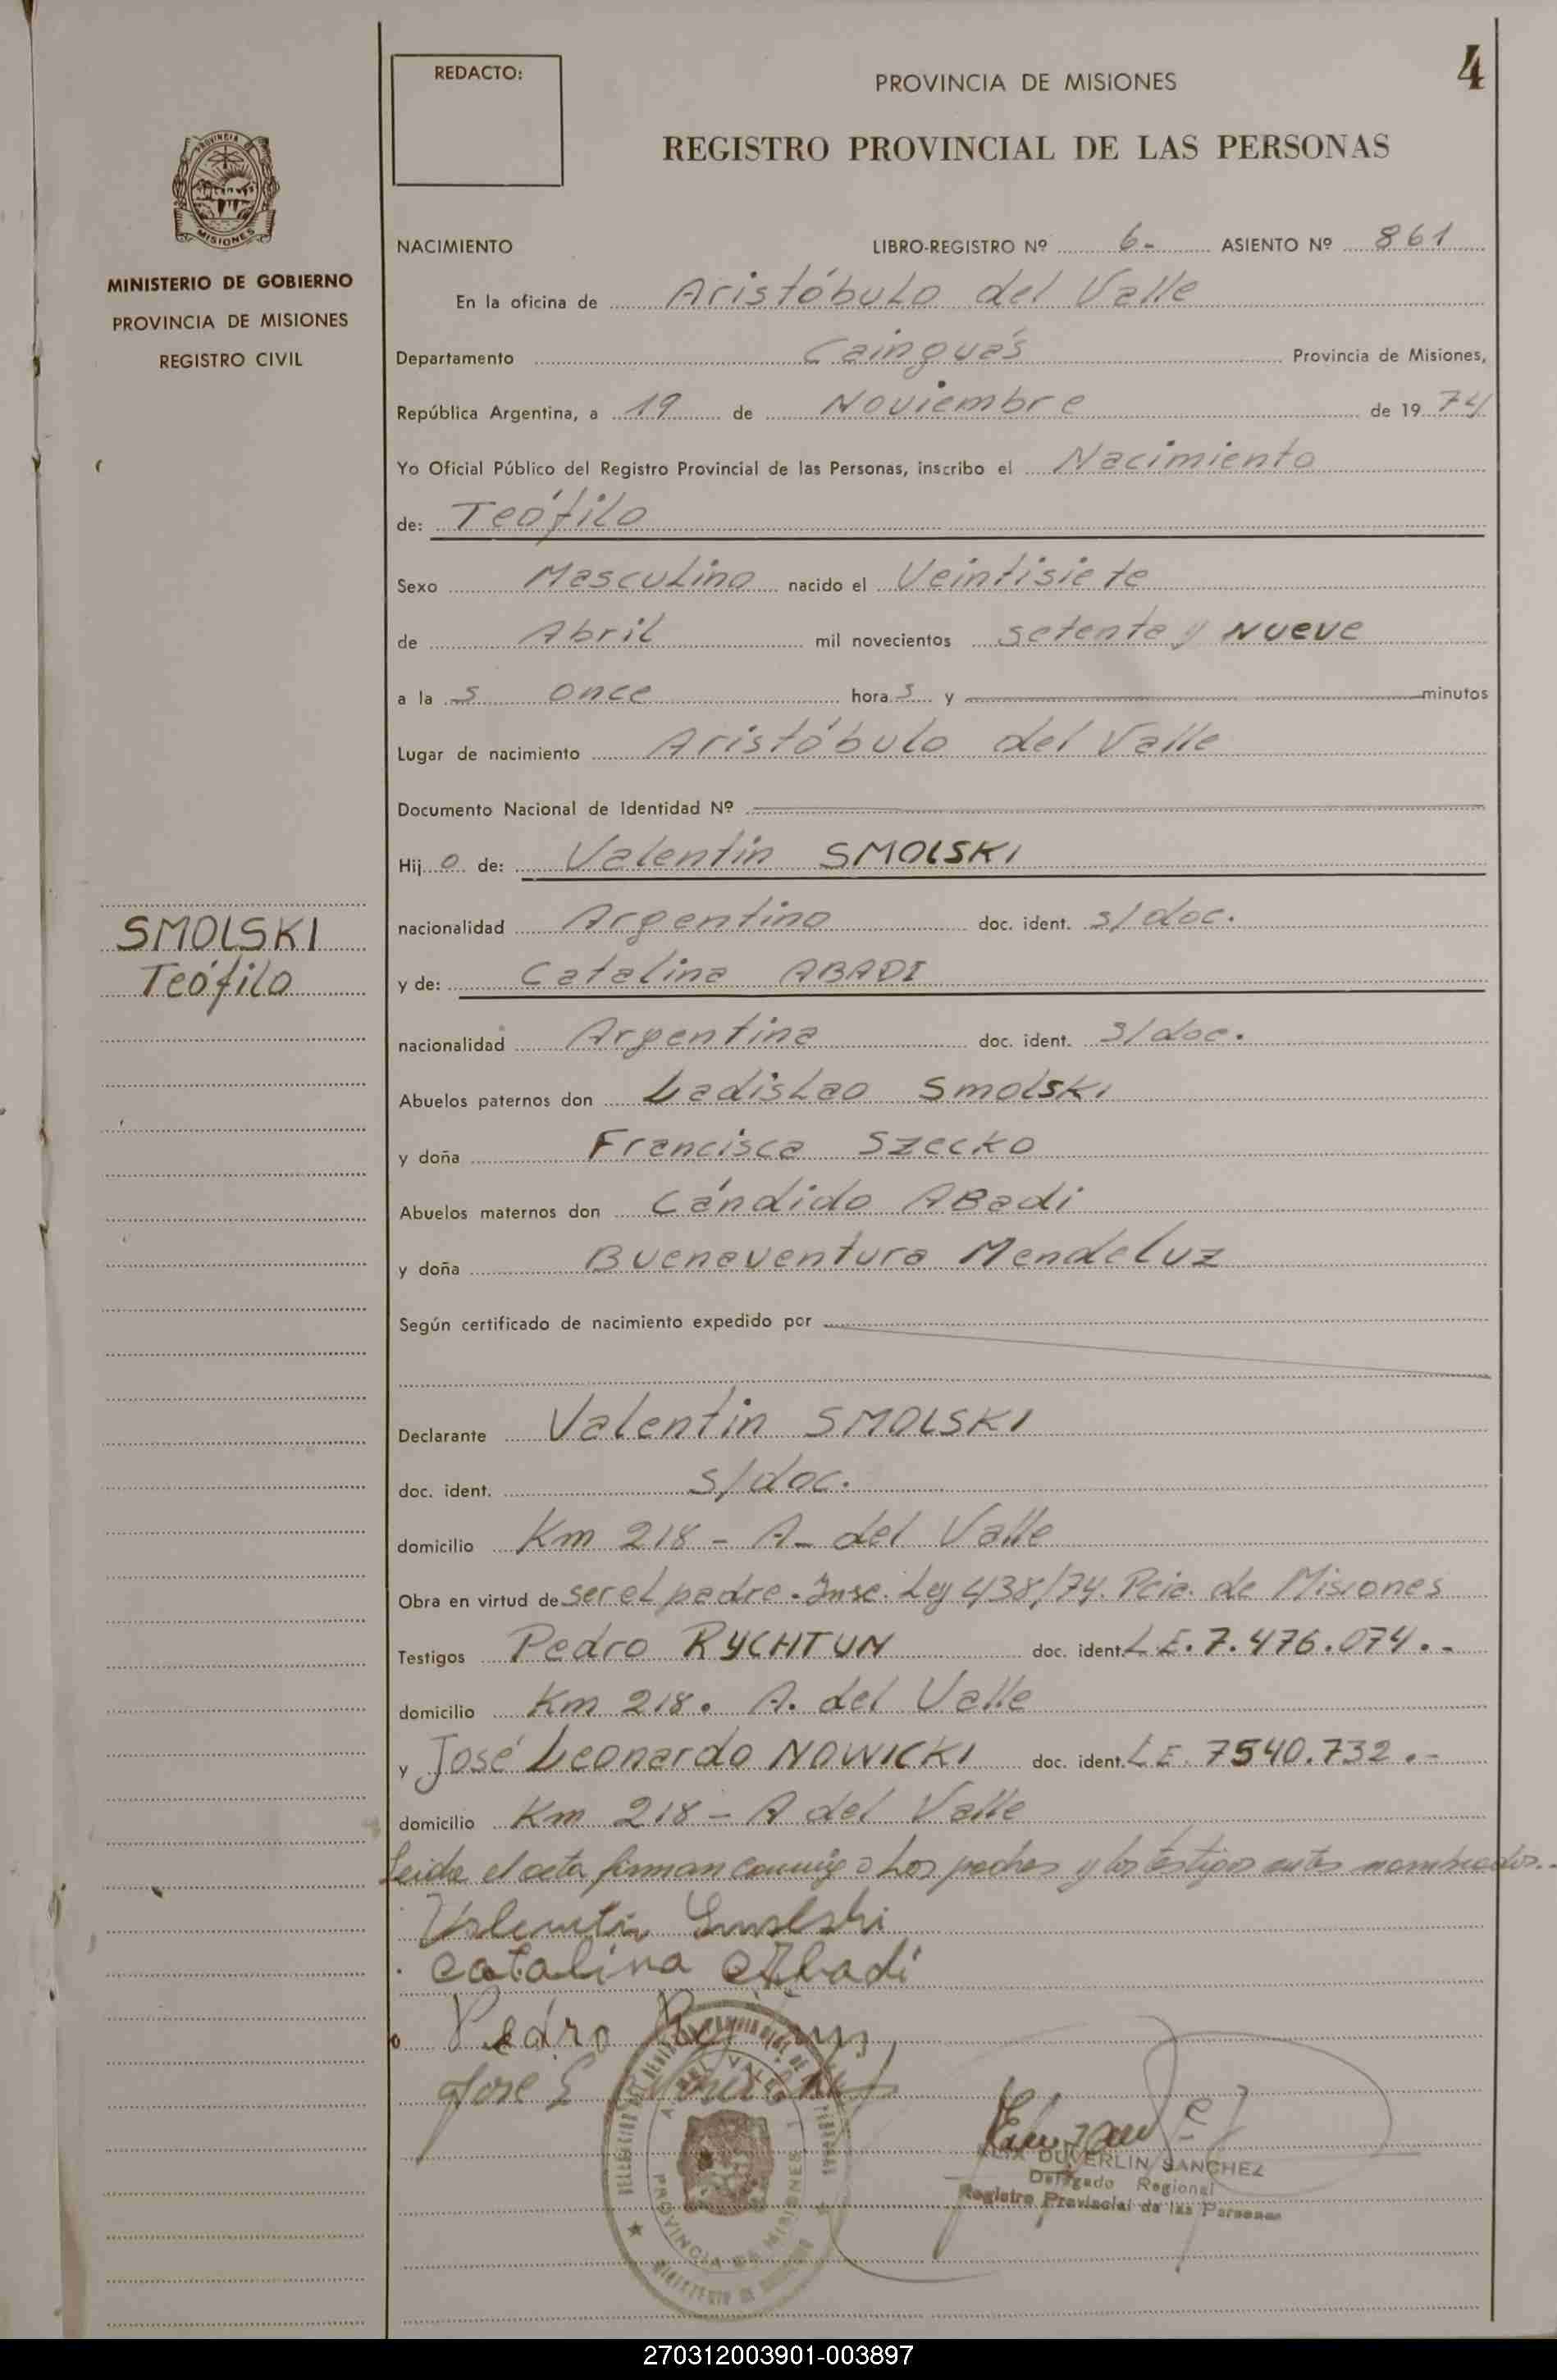 4
REDACTO:
PROVINCIA DE MISIONES
REGISTRO PROVINCIAL DE LAS PERSONAS
PROVINCIA DE
MISIONES
MINISTERIO DE GOBIERNO
PROVINCIA DE MISIONES
REGISTRO CIVIL
NACIMIENTO LIBRO-REGISTRO Nº 6- ASIENTO Nº 861
En la oficina de Aristóbulo del Valle
Departamento Cainguás Provincia de Misiones,
República Argentina, a 19 de Noviembre de 19 74
Yo Oficial Público del Registro Provincial de las Personas, inscribo el Nacimiento
de: Teófilo
Sexo Masculino nacido el Veintisiete
de Abril mil novecientos setenta y Nueve
a la s once hora s y minutos
Lugar de nacimiento Aristóbulo del Valle
Documento Nacional de Identidad Nº
Hij o de: Valentin SMOLSKI
SMOLSKI
Teófilo
nacionalidad Argentino doc. ident. s/doc.
y de: Catalina ABADI
nacionalidad Argentina doc. ident. s/doc.
Abuelos paternos don Ladislao Smolski
y doña Francisca Szecko
Abuelos maternos don Cándido ABadi
y doña Buenaventura Mendeluz
Según certificado de nacimiento expedido por
Declarante Valentin SMOLSKI
doc. ident. s/doc.
domicilio Km 218 - A- del Valle
Obra en virtud de ser el padre - Insc. Ley 438/74. Pcia. de Misiones
Testigos Pedro RYCHTUN doc. ident. L.E. 7.476.074.-
domicilio Km 218. A. del Valle
y José Leonardo NOWICKI doc. ident. L.E. 7540.732.-
domicilio Km 218 - A del Valle
Leida el acta firman conmigo los padres y los testigos antes nombrados.-
Valentin Smolski
Catalina Abadi
Pedro
Jose
DUVERLIN SANCHEZ
Delegado Regional
Registro Provincial de las Personas
PROVINCIA DE MISIONES
270312003901-003897